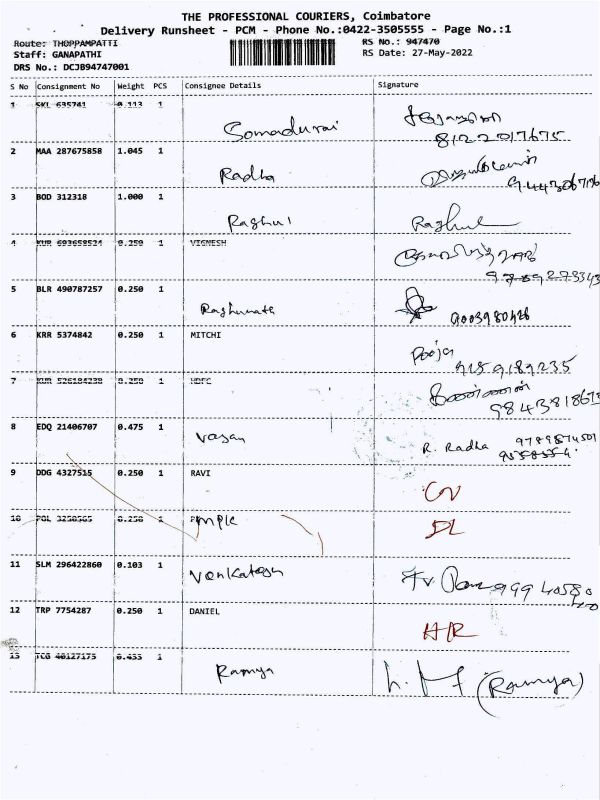 THE PROFESSIONAL COURIERS, Coimbatore
Delivery Runsheet - PCM - Phone No.:0422-3505555 - Page No.:1
Route: THOPPAMPATTI RS No.: 947470
Staff: GANAPATHI RS Date: 27-May-2022
DRS No.: DCJB94747001
S No Consignment No Weight PCS Consignee Details Signature
1 SKL 635741 0.113 1
Somadurai
8122017675
2 MAA 287675858 1.045 1
Radha
3 BOD 312318 1.000 1
Raghul Raghul
4 KUR 693658524 0.250 1 VIGNESH
5 BLR 490787257 0.250 1
Raghunath 9003980426
6 KRR 5374842 0.250 1 MITCHI
Pooja
9159189235
7 0.250 1 HDFC
8 EDQ 21406707 0.475 1
Vasan R. Radha 9789874501
9 DDG 4327515 0.250 1 RAVI
10 POL 3250565 0.250 1
DL
11 SLM 296422860 0.103 1
Venkatesh
12 TRP 7754287 0.250 1 DANIEL
13 TCG 40127175 0.455 1
Ramya (Ramya)